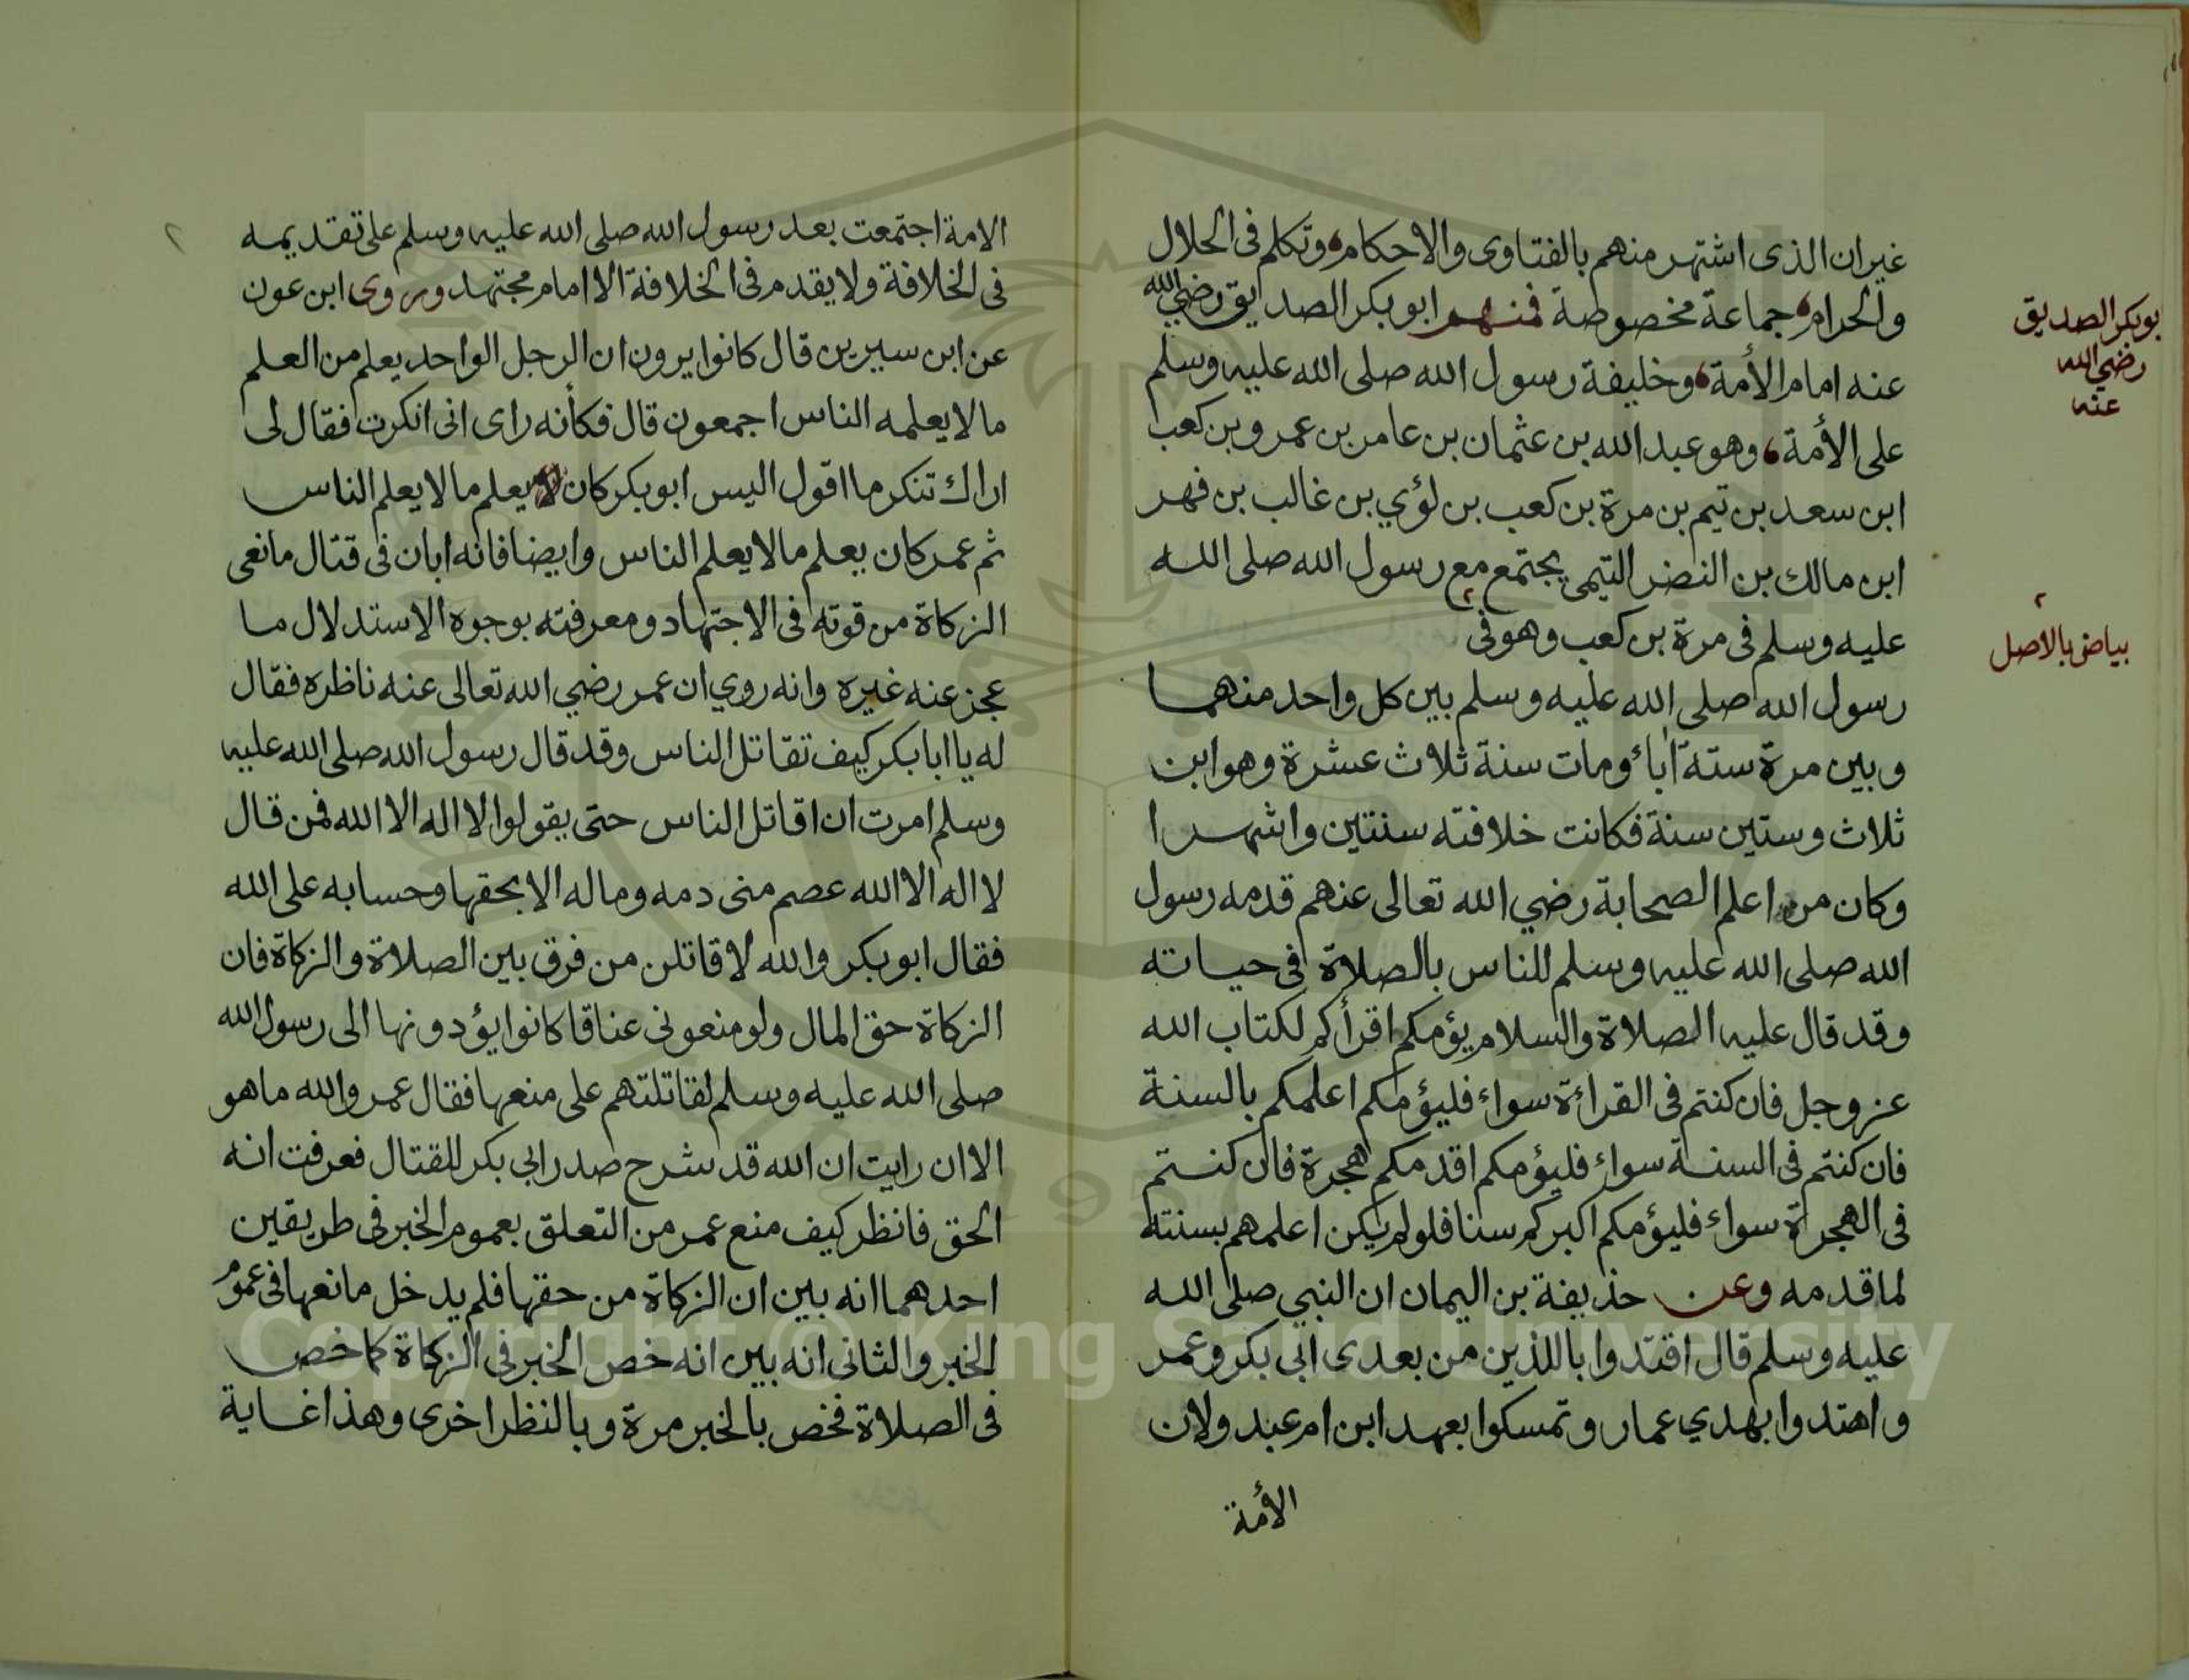 غير ان الذى اشتهر منهم بالفتاوى والاحكام، وتكلم فى الحلال
والحرام، جماعة مخصوصة فمنهم ابو بكر الصديق رضي الله
عنه امام الأمة، وخليفة رسول الله صلى الله عليه وسلم
على الأمة، وهو عبد الله بن عثمان بن عامر بن عمرو بن كعب
ابن سعد بن تيم بن مرة بن كعب بن لؤي بن غالب بن فهر
ابن مالك بن النضر التيمى يجتمع مع رسول الله صلى الله
عليه وسلم فى مرة بن كعب وهو فى ٢
رسول الله صلى الله عليه وسلم بين كل واحد منهما
وبين مرة ستة اباء ومات سنة ثلاث عشرة وهو ابن
ثلاث وستين سنة فكانت خلافته سنتين واشهرا
وكان من اعلم الصحابة رضي الله تعالى عنهم قدمه رسول
الله صلى الله عليه وسلم للناس بالصلاة فى حياته
وقد قال عليه الصلاة والسلام يؤمكم اقرأكم لكتاب الله
عز وجل فان كنتم فى القراءة سواء فليؤمكم اعلمكم بالسنة
فان كنتم فى السنة سواء فليؤمكم اقدمكم هجرة فان كنتم
فى الهجرة سواء فليؤمكم اكبركم سنا فلو لم يكن اعلمهم بسنته
لما قدمه وعن حذيفة بن اليمان ان النبي صلى الله
عليه وسلم قال اقتدوا باللذين من بعدى ابى بكر وعمر
واهتدوا بهدي عمار وتمسكوا بعهد ابن ام عبد ولان
الأمة
بوبكر الصديق
رضي الله
عنه
٢
بياض بالاصل
٢
الامة اجتمعت بعد رسول الله صلى الله عليه وسلم على تقديمه
فى الخلافة ولا يقدم فى الخلافة الا امام مجتهد وروى ابن عون
عن ابن سيرين قال كانوا يرون ان الرجل الواحد يعلم من العلم
ما لا يعلمه الناس اجمعون قال فكأنه راى انى انكرت فقال لى
اراك تنكر ما اقول اليس ابو بكر كان يعلم ما لا يعلم الناس
ثم عمر كان يعلم ما لا يعلم الناس وايضا فانه ابان فى قتال مانعى
الزكاة من قوته فى الاجتهاد ومعرفته بوجوه الاستدلال ما
عجز عنه غيره وانه روي ان عمر رضي الله تعالى عنه ناظره فقال
له يا ابا بكر كيف تقاتل الناس وقد قال رسول الله صلى الله عليه
وسلم امرت ان اقاتل الناس حتى يقولوا لا اله الا الله فمن قال
لا اله الا الله عصم منى دمه وماله الا بحقها وحسابه على الله
فقال ابو بكر والله لاقاتلن من فرق بين الصلاة والزكاة فان
الزكاة حق المال ولو منعونى عناقا كانوا يؤدونها الى رسول الله
صلى الله عليه وسلم لقاتلتهم على منعها فقال عمر والله ما هو
الا ان رايت ان الله قد شرح صدر ابى بكر للقتال فعرفت انه
الحق فانظر كيف منع عمر من التعلق بعموم الخبر فى طريقين
احدهما انه بين ان الزكاة من حقها فلم يدخل مانعها فى عموم
الخبر والثانى انه بين انه خص الخبر فى الزكاة كما خص
فى الصلاة فخص بالخبر مرة وبالنظر اخرى وهذا غاية
1957
Copyright © King Saud University